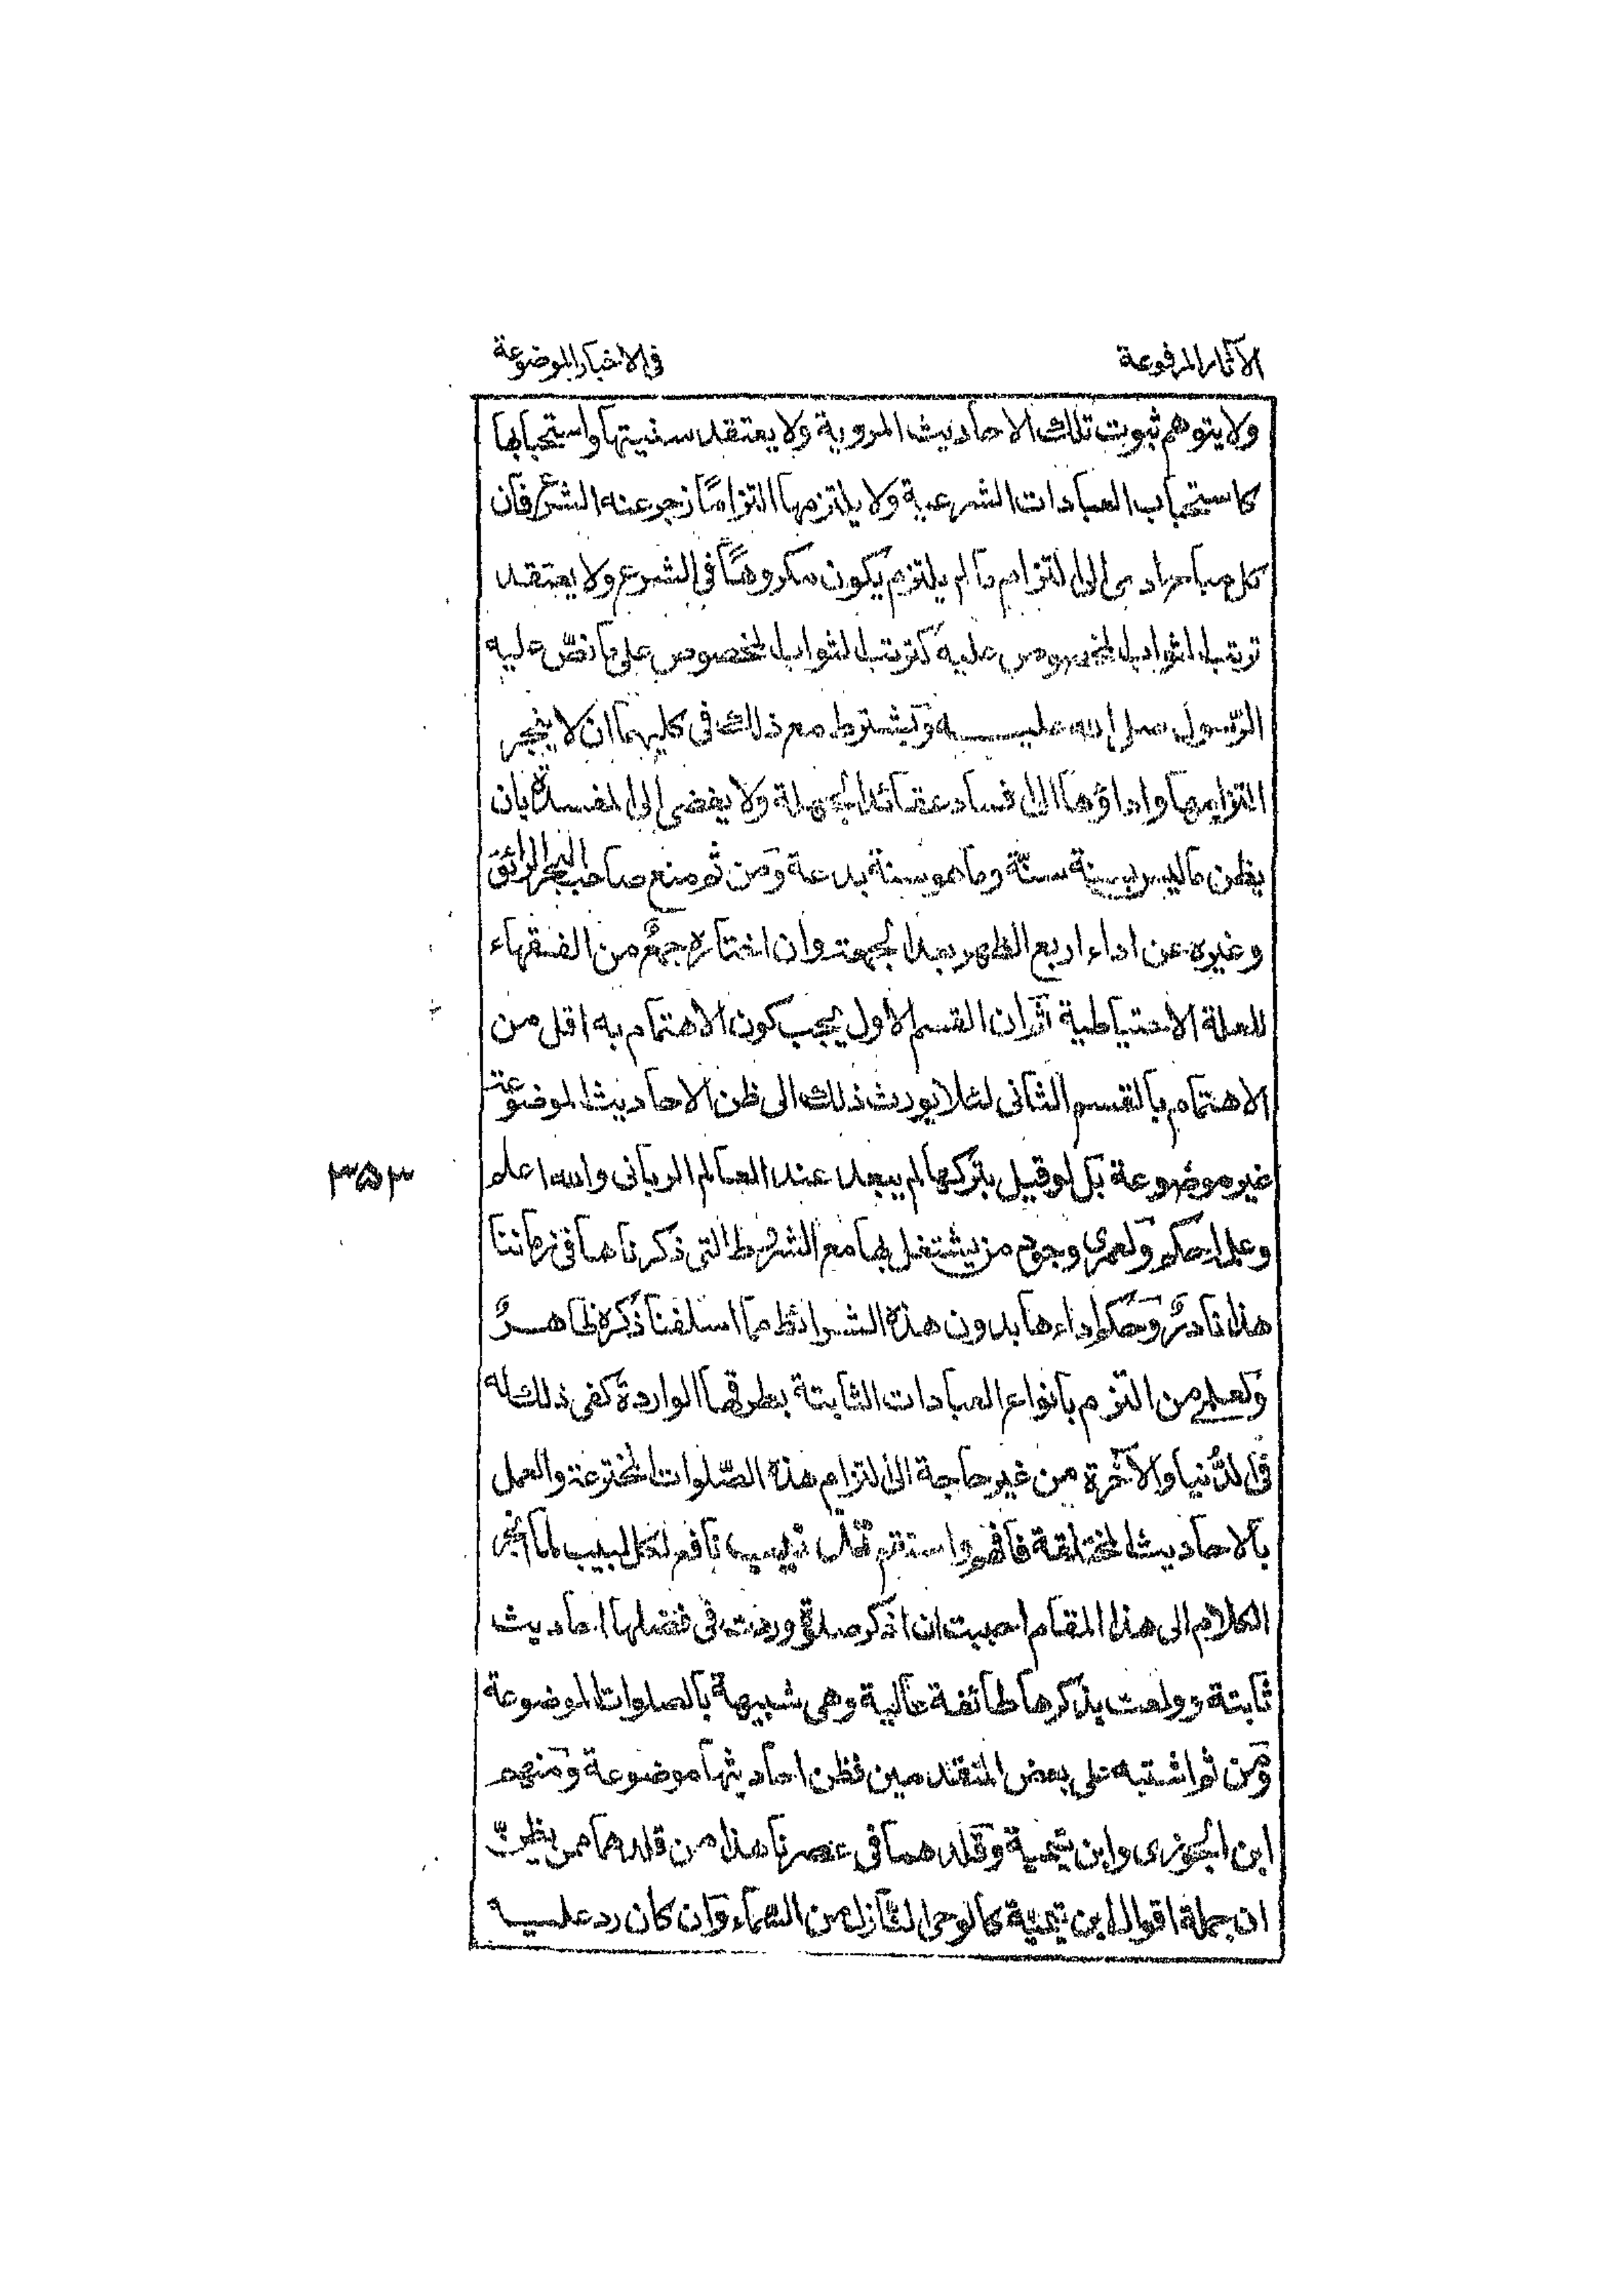 الآثار المرفوعة
فى الاخبار الموضوعة
ولا يتوهم ثبوت تلك الاحاديث المروية ولا يعتقد سنيتها واستحبابها
كاستحباب العبادات الشرعية ولا يلتزمها التزاماً زجر عنه الشرع فان
كل مباح ادى الى التزام ما لم يلتزم يكون مكروهاً فى الشرع ولا يعتقد
ترتب الثواب المخصوص عليه كترتب الثواب المخصوص على ما نصّ عليه
الرّسول صلى الله عليه ويشترط مع ذلك فى كليهما ان لا ينجر
التزامها واداؤها الى فساد عقائد الجهلة ولا يفضى الى المفسدة بان
يظن ما ليس بسنة سنّة وما هو سنة بدعة ومن ثم منع صاحب البحر الرائق
وغيره عن اداء اربع الظهر بعد الجمعة وان اختاره جمعٌ من الفقهاء
للعلة الاحتياطية ثم ان القسم الاول يجب كون الاهتمام به اقل من
الاهتمام بالقسم الثانى لئلا يورث ذلك الى ظن الاحاديث الموضوعة
غير موضوعة بل لو قيل بتركها لم يبعد عند العالم الربانى والله اعلم
٣٥٣
وعلمه احكم ولعمرى وجود من يشتغل بها مع الشروط التى ذكرناها فى زماننا
هذا نادرٌ وحكم اداءها بدون هذه الشرائط مما اسلفنا ذكره ظاهرٌ
ولعلى من التزم بانواع العبادات الثابتة بطرقها الواردة كفى ذلك له
فى الدُّنيا والآخرة من غير حاجة الى التزام هذه الصّلوات المخترعة والعمل
بالاحاديث المختلقة فافهم واستقم تذنيب نافع لكل لبيب لما انجر
الكلام الى هذا المقام احببت ان اذكر صلوة وردت فى فضلها احاديث
ثابتة وولعت بذكرها طائفة عالية وهى شبيهة بالصلوات الموضوعة
ومن ثم اشتبه على بعض المتقدمين فظن احاديثها موضوعة ومنهم
ابن الجوزى وابن تيمية وقلدهما فى عصرنا هذا من قلدهما ممن يظنّ
ان جملة اقوال ابن تيمية كالوحى النازل من السماء وان كان رد عليه